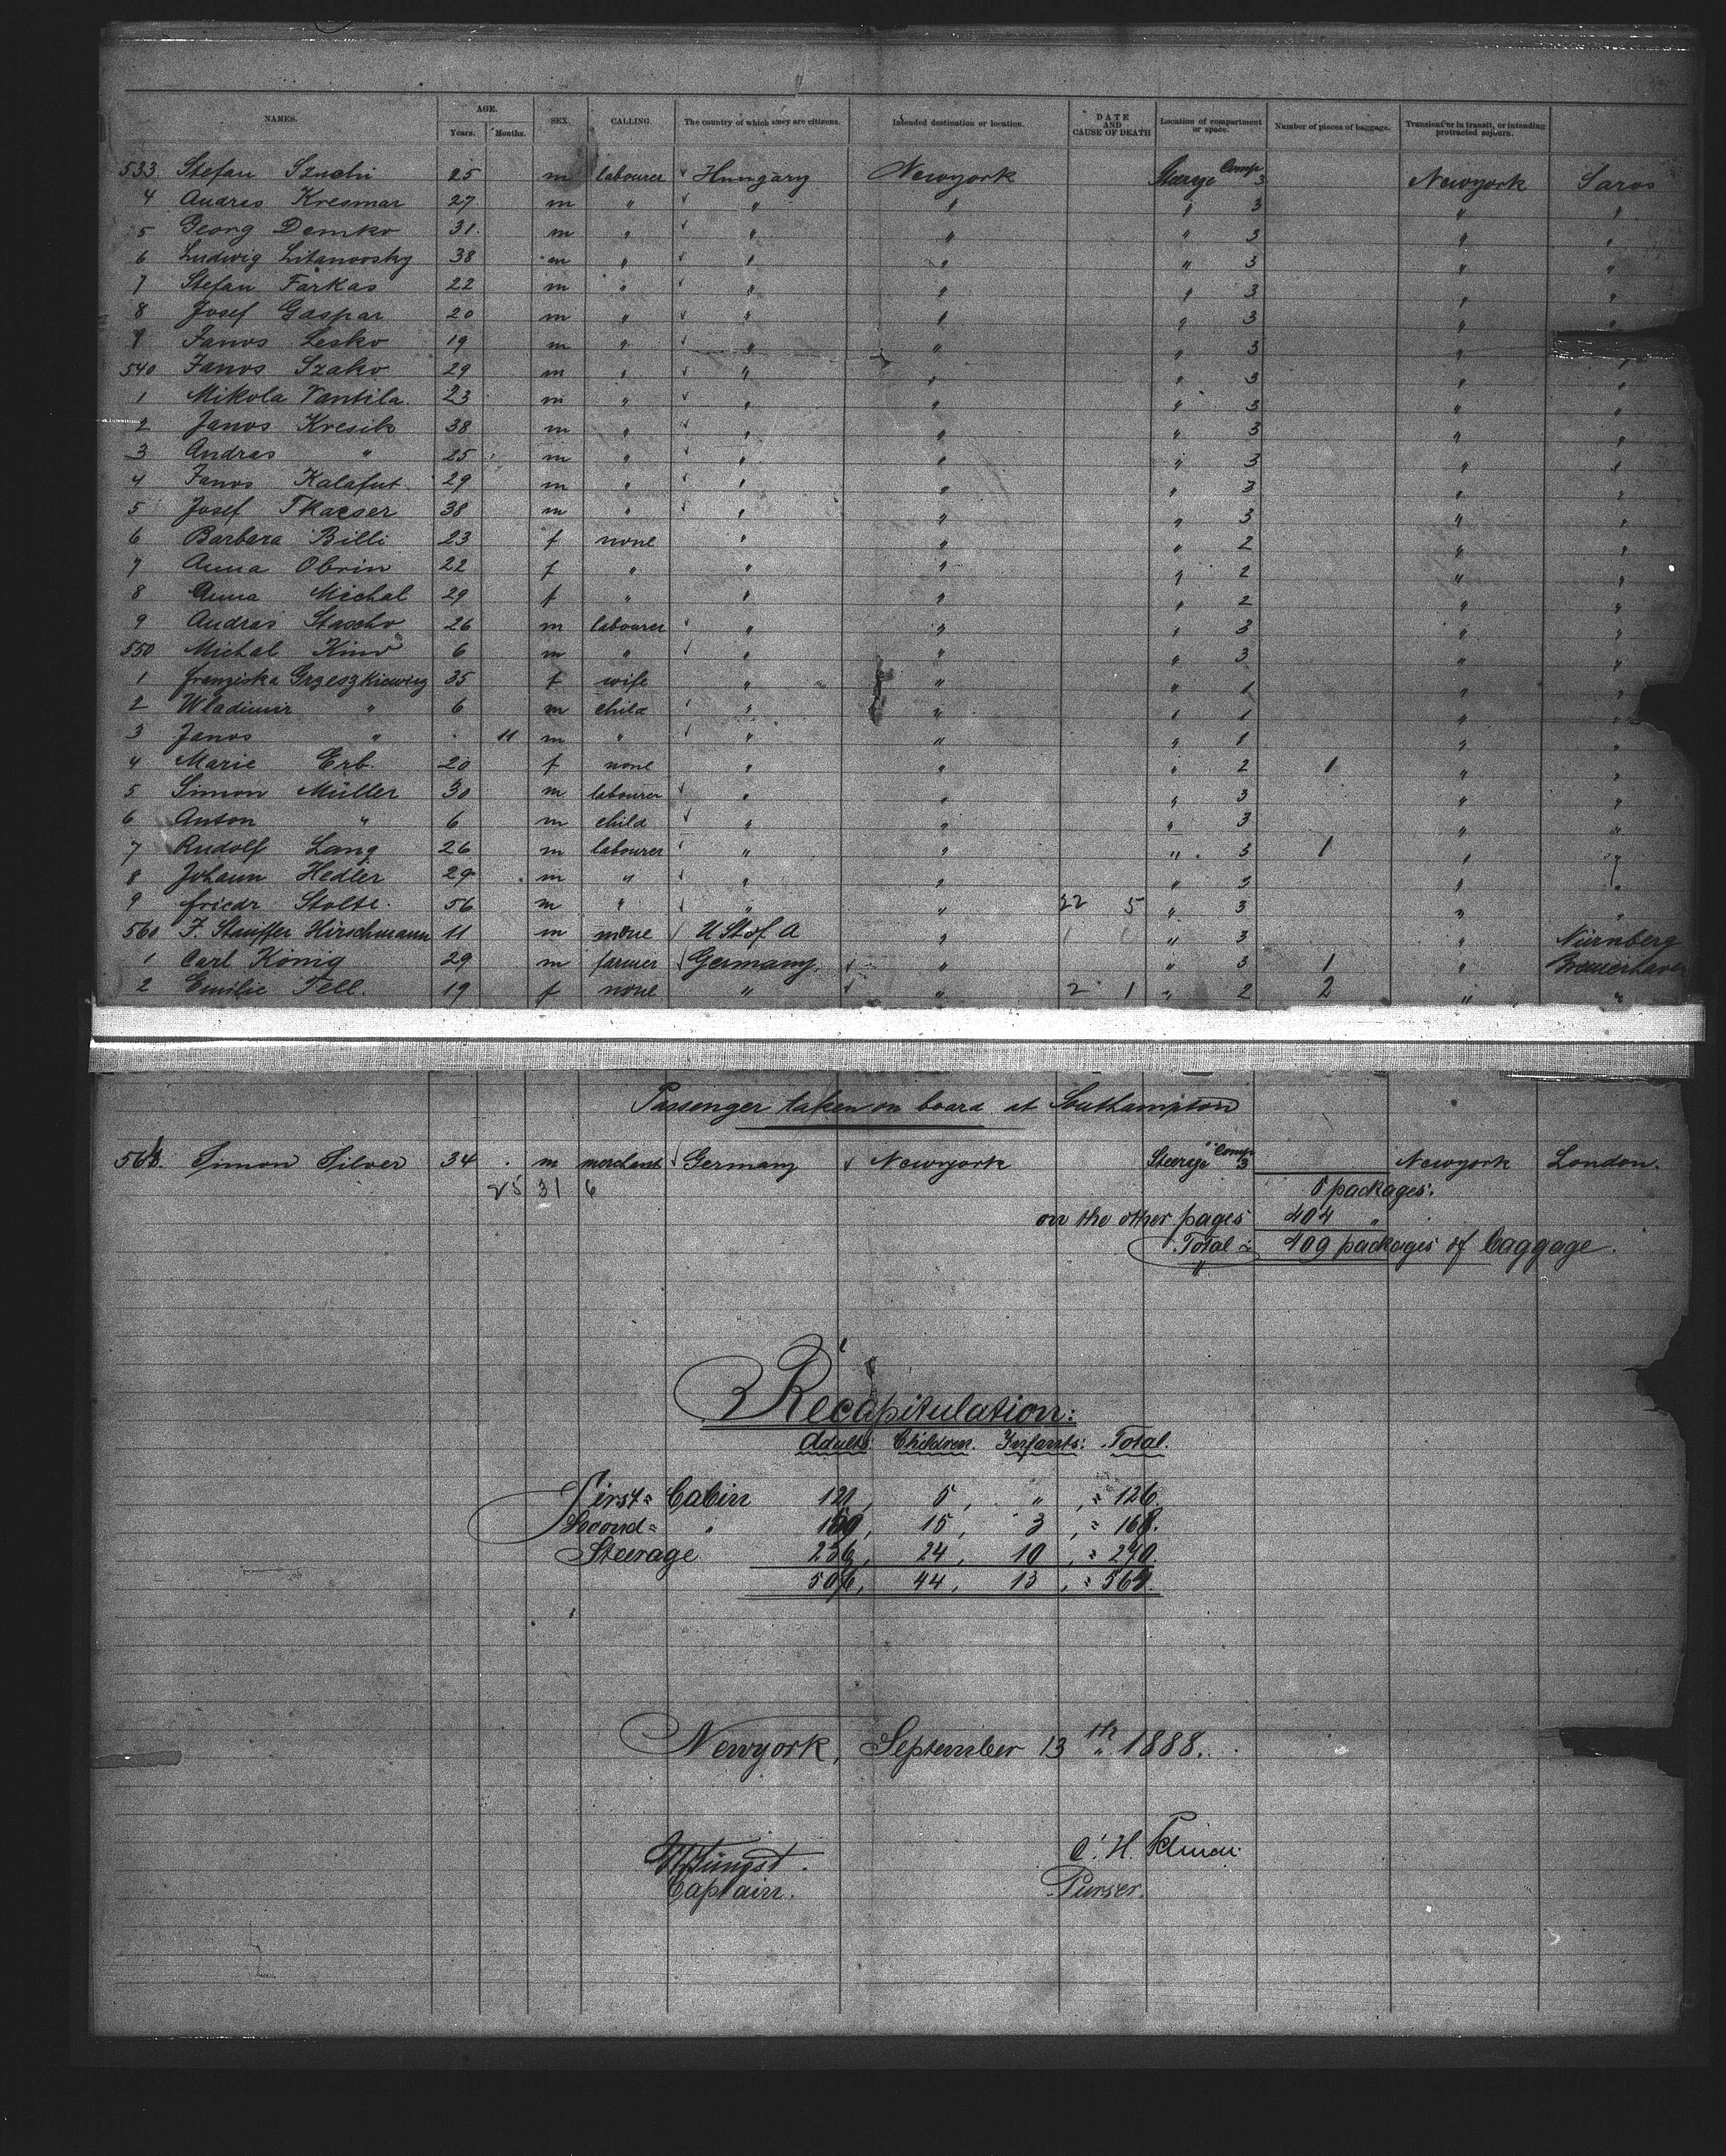 NAMES. AGE. Years. Months. SEX. CALLING. The country of which they are citizens. Intended destination or location. DATE AND CAUSE OF DEATH Location of compartment or space. Number of pieces of baggage. Transient or in transit, or intending protracted sojourn.
533 Stefan 25 m labourer Hungary Newyork Steerge Comp. 3 Newyork Saros
4 Andras Kresmar 27 m " " " " 3 " "
5 Georg Demko 31. m " " " " 3 " "
6 Ludwig Litanvosky 38 m " " " " 3 " "
7 Stefan Farkas 22 m " " " " 3 " "
8 Josef Gaspar 20 m " " " " 3 " "
9 Janos Lesko 19 m " " " " 3 " "
540 Janos Szako 29 m " " " " 3 " "
1 Mikola Vantila 23 m " " " " 3 " "
2 Janos Kresik 38 m " " " " 3 " "
3 Andras " 25 m " " " " 3 " "
4 Janos Kalafut 29 m " " " " 3 " "
5 Josef Tkacser 38 m " " " " 3 " "
6 Barbera Billi 23 f none " " " 2 " "
7 Anna Obrin 22 f " " " " 2 " "
8 Anna Michal 29 f " " " " 2 " "
9 Andras Stascho 26 m labourer " " " 3 " "
550 Michal 6 m " " " " 3 " "
1 Franziska Grzeszkiewicz 35 f wife " " " 1 " "
2 Wladimir " 6 m child " " " 1 " "
3 Janos " 11 m " " " " 1 " "
4 Marie Erb. 20 f none " " " 2 1 " "
5 Simon Müller 30 m labourer " " " 3 " "
6 Anton " 6 m child " " " 3 " "
7 Rudolf Lang 26 m labourer " " " 3 1 " "
8 Johann Hedler 29 m " " " " 3 " "
9 Friedr Stolte. 56 m " " " 22 5 " 3 " "
560 F. Stauffer Hirschmann 11 m none U St of A " " 3 " Nürnberg
1 Carl König 29 m farmer Germany " " 3 1 " Bremerhaven
2 Emilie Tell. 19 f none " " 2 1 " 2 2 " "
Passenger taken on board at Southampton
Simon Silver 34 m merchant Germany Newyork Steerge Comp. 3 Newyork London.
25 31 6
5 packages.
on the other pages 404 "
Total = 409 packages of baggage.
Recapitulation:
Adults: Children. Infants: Total.
First = Cabin 121, 5, " , = 126.
Second = " 15, 3, = 168.
Steerage 236, 24, 10, = 270.
506, 44, 13, = 564.
Newyork, September 13th 1888.
Jüngst. C. H.
Captain. Purser.